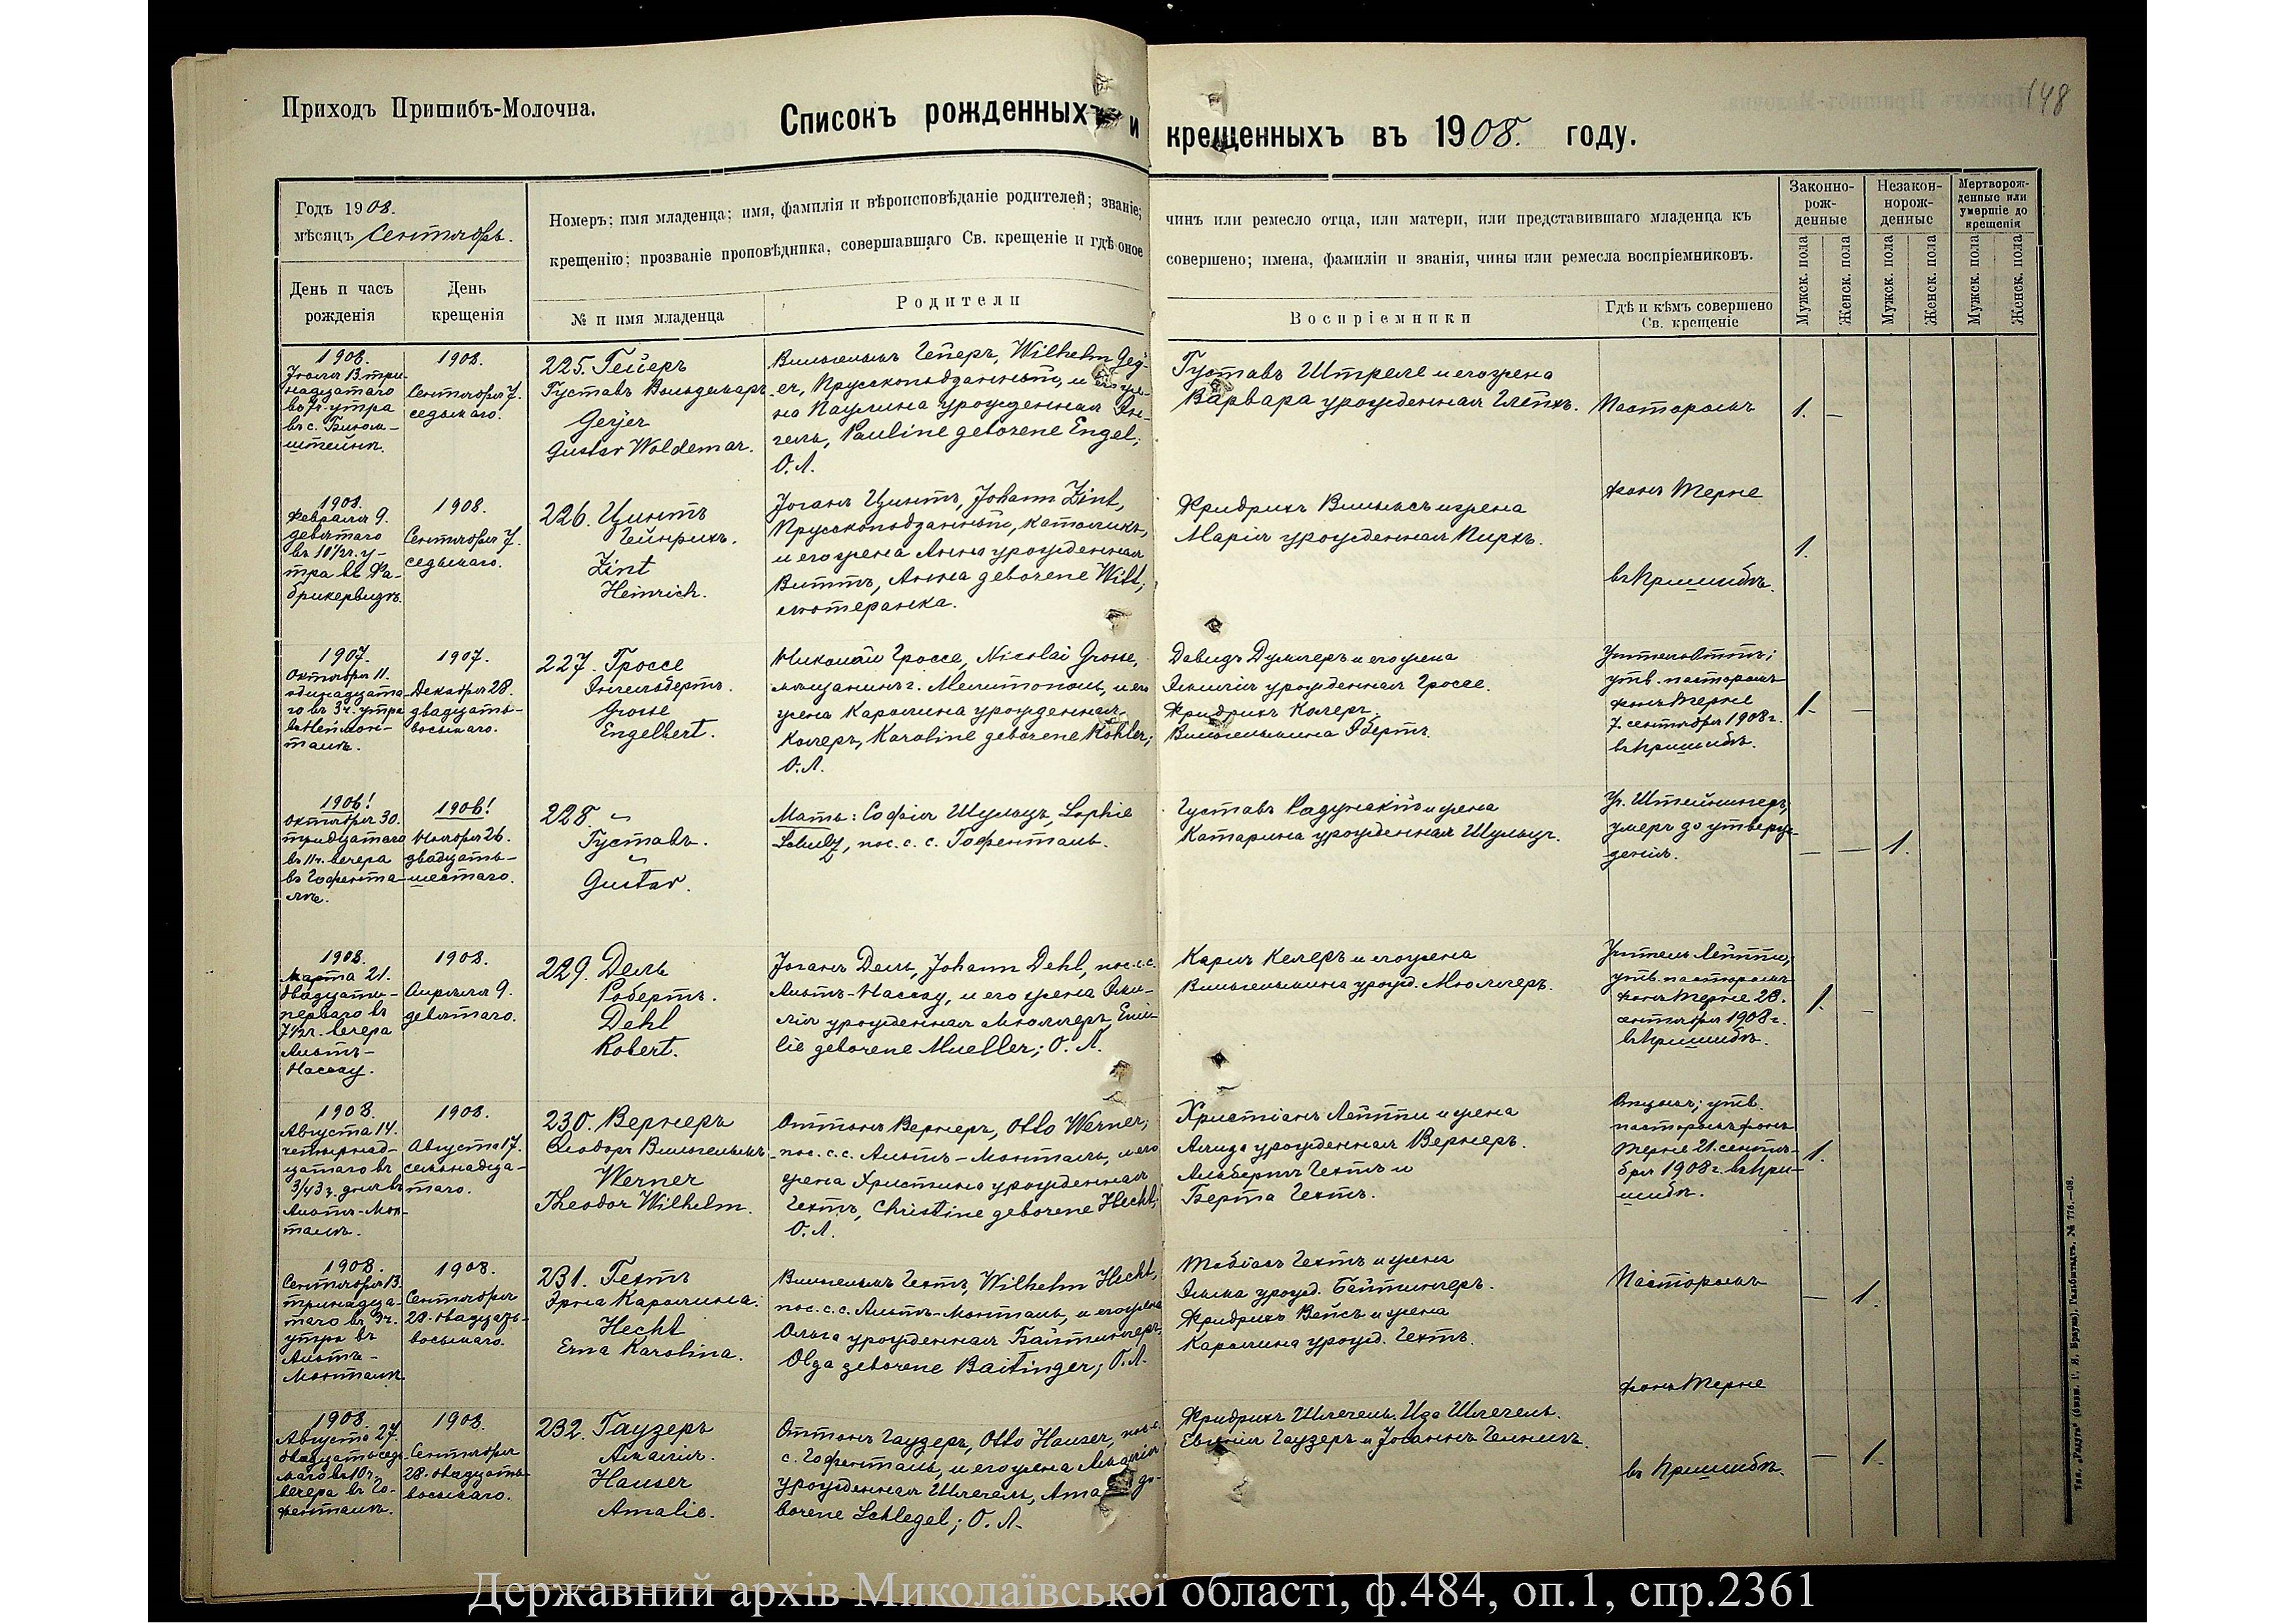 148
Приходъ Пришибъ-Молочна.
Списокъ рожденныхъ и крещенныхъ въ 1908. году.
Годъ 1908.
мѣсяцъ Сентябрь.
День и часъ
рожденія
День
крещенія
Номеръ; имя младенца; имя, фамилія и вѣроисповѣданіе родителей; званіе;
крещенію; прозваніе проповѣдника, совершавшаго Св. крещеніе и гдѣ оное
№ и имя младенца
Родители
чинъ или ремесло отца, или матери, или представившаго младенца къ
совершено; имена, фамиліи и званія, чины или ремесла воспріемниковъ.
Воспріемники
Гдѣ и кѣмъ совершено
Св. крещеніе
Законно-
рож-
денные
Незакон-
норож-
денные
Мертворож-
денные или
умершіе до
крещенія
Мужск. пола
Женск. пола
Мужск. пола
Женск. пола
Мужск. пола
Женск. пола
1908.
Іюля 13. три-
надцатаго
въ 7ч. утра
въ с. Блюм-
штейнѣ.
1908.
Сентября 7.
седьмаго.
225. Гейеръ
Густавъ Вольдемаръ
Geyer
Gustav Woldemar.
Вильгельмъ Гейеръ, Wilhelm Gey-
er, Прусскоподданный, и его же-
на Паулина урожденная Эн-
гель, Pauline geborene Engel;
О.Л.
Густавъ Штреле и его жена
Варвара урожденная
Пасторомъ
1. —
1908.
Февраля 9.
девятаго
въ 10½ч. у-
тра въ Фа-
брикервидѣ.
1908.
Сентября 7.
седьмаго.
226. Цинтъ
Гейнрихъ.
Zint
Heinrich.
Іоганъ Цинтъ, Johann Zint,
Прусскоподданный, католикъ,
и его жена Анна урожденная
Виттъ, Anna geborene Witt,
лютеранка.
Фридрихъ Вильмсъ и жена
Марія урожденная Пиркъ.
фонъ Терне
въ Пришибѣ.
1.
1907.
Октября 11.
одинадцата-
го въ 3ч. утра
въ Неймон-
талѣ.
1907.
Декабря 28.
двадцать-
восьмаго.
227. Гроссе
Энгельбертъ.
Grosse
Engelbert.
Николай Гроссе, Nicolai Grosse,
мѣщанинъ г. Мелитополь, и его
жена Каролина урожденная
Колеръ, Karoline geborene Kohler;
О.Л.
Давидъ Думлеръ и его жена
Эмилія урожденная Гроссе.
Фридрихъ Колеръ.
Вильгельмина Эбертъ.
Учитель Оттъ;
утв. пасторомъ
фонъ Терне
7. сентября 1908 г.
въ Пришибѣ.
1. —
1906!
Октября 30.
тридцатаго
въ 11ч. вечера
въ Гофента-
лѣ.
1906!
Ноября 26.
двадцать-
шестаго.
228 "
Густавъ.
"
Gustav.
Мать: Софія Шульцъ, Sophie
Schulz, пос. с. с. Гофенталь.
Густавъ Радунскій и жена
Катарина урожденная Шульцъ.
Уч. Штейнингеръ,
умеръ до утверж-
денія.
— — 1.
1908.
Марта 21.
двадцать-
перваго въ
7½ч. вечера
Альтъ-
Нассау.
1908.
Апрѣля 9.
девятаго.
229. Дель
Робертъ.
Dehl
Robert.
Іоганъ Дель, Johann Dehl, пос. с. с.
Альтъ-Нассау, и его жена Эми-
лія урожденная Мюллеръ, Emi-
lie geborene Mueller; О. Л.
Карлъ Келеръ и его жена
Вильгельмина урожд. Мюллеръ.
Учитель Лейппи,
утв. пасторомъ
фонъ Терне 28.
сентября 1908 г.
въ Пришибѣ.
1. —
1908.
Августа 14.
четырнад-
цатаго въ
3/4 3 ч. дня въ
Альтъ-Мон-
талѣ.
1908.
Августа 17.
семнадца-
таго.
230. Вернеръ
Ѳеодоръ Вильгельмъ
Werner
Theodor Wilhelm.
Оттонъ Вернеръ, Otto Werner,
пос. с. с. Альтъ-Монталь, и его
жена Христина урожденная
Гехтъ, Christine geborene Hecht;
О.Л.
Христіанъ Лейппи и жена
Алида урожденная Вернеръ.
Альбертъ Гехтъ и
Берта Гехтъ.
Отцомъ; утв.
пасторомъ фонъ
Терне 21. сентя-
бря 1908 г. въ При-
шибѣ.
1.
1908.
Сентября 13.
тринадца-
таго въ 9ч.
утра въ
Альтъ-
Монталѣ.
1908.
Сентября
28. двадцать-
восьмаго.
231. Гехтъ
Эрна Каролина.
Hecht
Erna Karolina.
Вильгельмъ Гехтъ, Wilhelm Hecht,
пос. с. с. Альтъ-Монталь, и его жена
Ольга урожденная Байтингеръ,
Olga geborene Baitinger; О.Л.
Тобіасъ Гехтъ и жена
Эмма урожд. Байтингеръ.
Фридрихъ Вейсъ и жена
Каролина урожд. Гехтъ.
Пасторомъ
— 1.
1908.
Августа 27.
двадцатьседь-
маго въ 10ч.
вечера въ Го-
фенталѣ.
1908.
Сентября
28. двадцать-
восьмаго.
232. Гаузеръ
Амалія.
Hauser
Amalie.
Оттонъ Гаузеръ, Otto Hauser, пос. с.
с. Гофенталь, и его жена Амалія
урожденная Шлегель, Ama ge-
borene Schlegel; О. Л.
Фридрихъ Шлегель. Ида Шлегель.
Евгенія Гаузеръ и Іоганнъ
фонъ Терне
въ Пришибѣ.
— 1.
Тип. „Радуга" (бывш. Г. Я. Брауна), Гальбштадтъ. № 776.—08.
Державний архів Миколаївської області, ф.484, оп.1, спр.2361